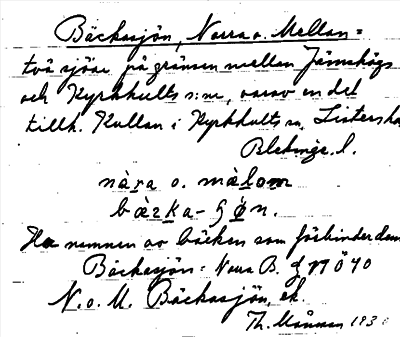 Bäckasjön, Norra o. Mellan =
två sjöar på gränsen mellan Jämshögs
och Kyrkhults s:nr, varav en del
tillh. Kullan i Kyrkhults sn. Listersha
Blekinge l.
nàra o. mælom
bæzka- ʂøn.
Ha namnen av bäcken som förbinder dem
Bäckasjön: Norra B. GN Ö 40
N. o. M. Bäckasjön, ek.
Th. Månsson 193